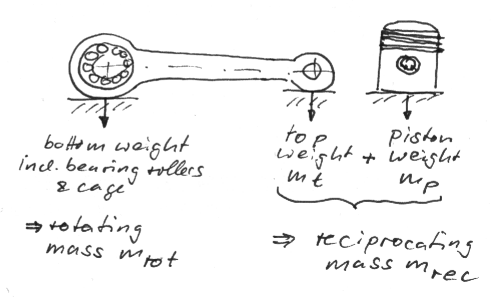 bottom weight
incl. bearing rollers
& cage
⇒ rotating
mass mrot
top
weight +
mt
piston
weight
mp
⇒ reciprocating
mass mrec